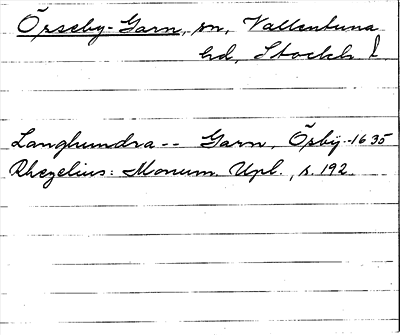 Össeby-Garn, sn, Vallentuna
hd, Stockh. l.
Langhundra -- Garn, Ösby -1635
Rhezelius: Monum. Upl., s. 192